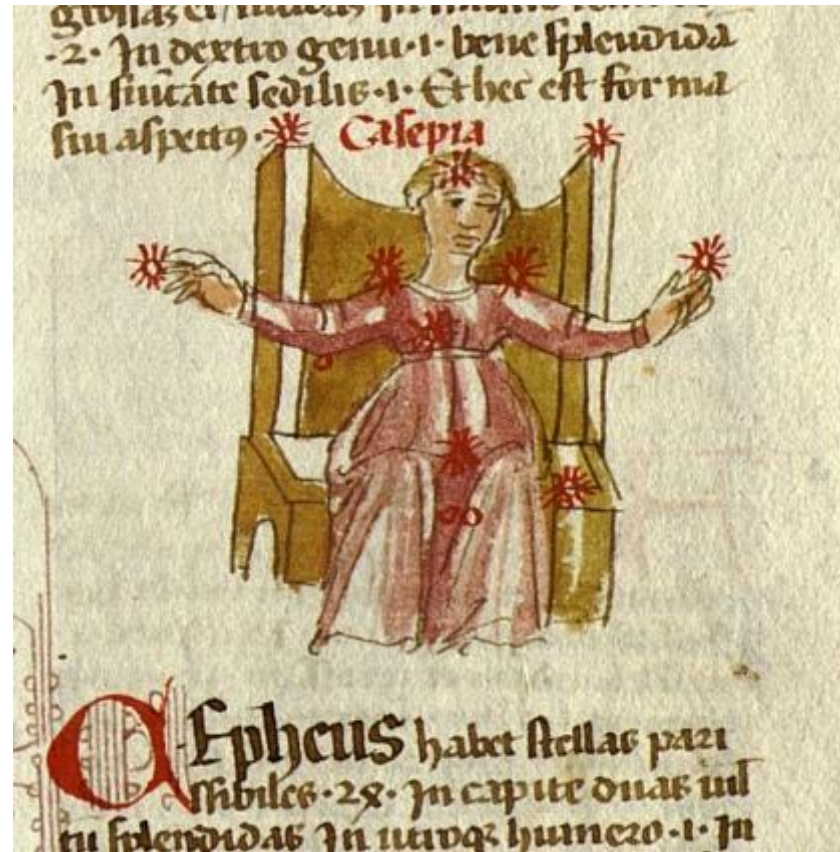 .2. In dextro genu .1. bene splendida
In su͞itate sedilis .1. Et hec est forma
sui aspectꝰ.
Casepia
CEpheus habet stellas pari
ssibiles .2x. In capite duas
splendidas In utroqꝫ humero .1. In